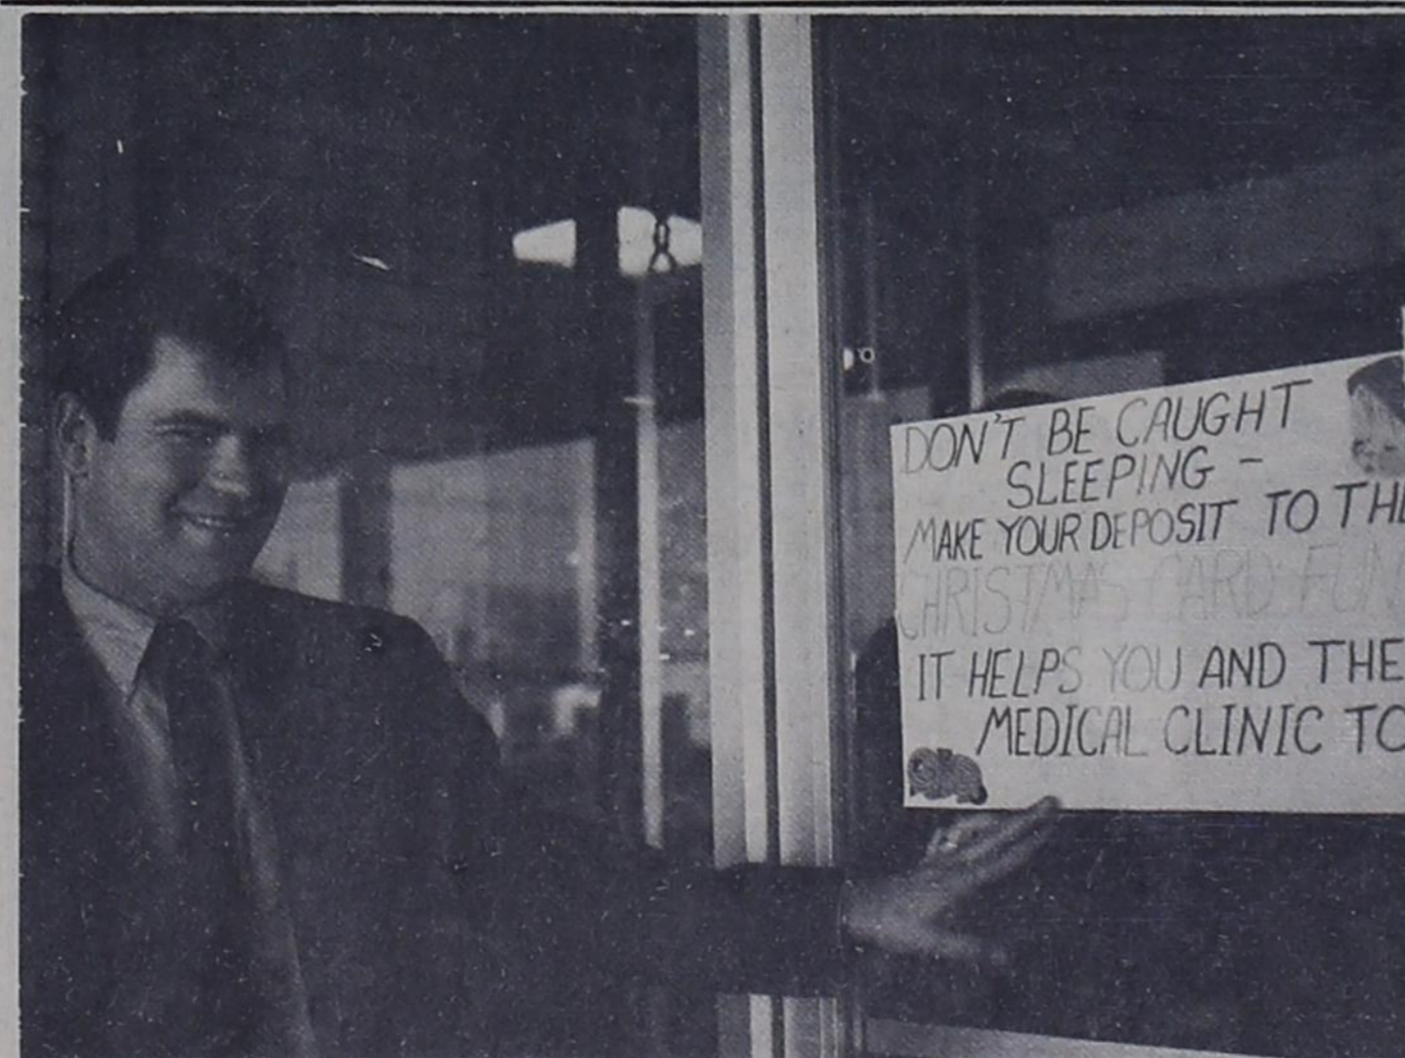 DON'T BE CAUGHT
SLEEPING -
MAKE YOUR DEPOSIT TO THE
CHRISTMAS CARD FUN
IT HELPS YOU AND THE
MEDICAL CLINIC TO